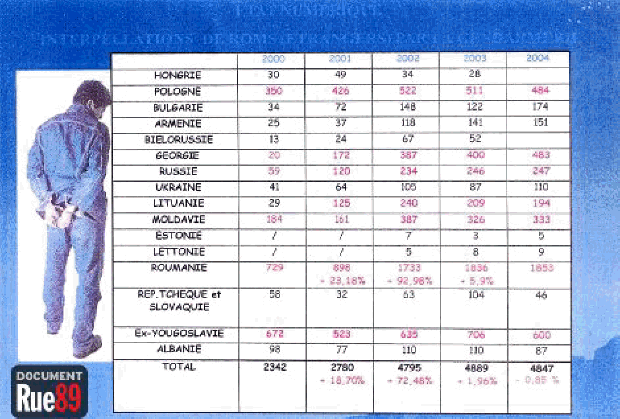 INTERPELLATIONS DE ROMS (ETRANGERS) PAR LA GENDARMERIE
2000 2001 2002 2003 2004
HONGRIE 30 49 34 28
POLOGNE 350 426 522 511 484
BULGARIE 34 72 148 122 174
ARMENIE 25 37 118 141 151
BIELORUSSIE 13 24 67 52
GEORGIE 20 172 387 400 483
RUSSIE 59 120 234 246 247
UKRAINE 41 64 105 87 110
LITUANIE 29 125 240 209 194
MOLDAVIE 184 161 387 326 333
ESTONIE / / 7 3 5
LETTONIE / / 5 8 9
ROUMANIE 729 898 1733 1836 1853
+ 23,18% + 92,98% + 5,9%
REP. TCHEQUE et 58 32 63 104 46
SLOVAQUIE
Ex-YOUGOSLAVIE 672 523 635 706 600
ALBANIE 98 77 110 110 87
TOTAL 2342 2780 4795 4889 4847
+ 18,70% + 72,48% + 1,96% - 0,85 %
DOCUMENT
Rue89